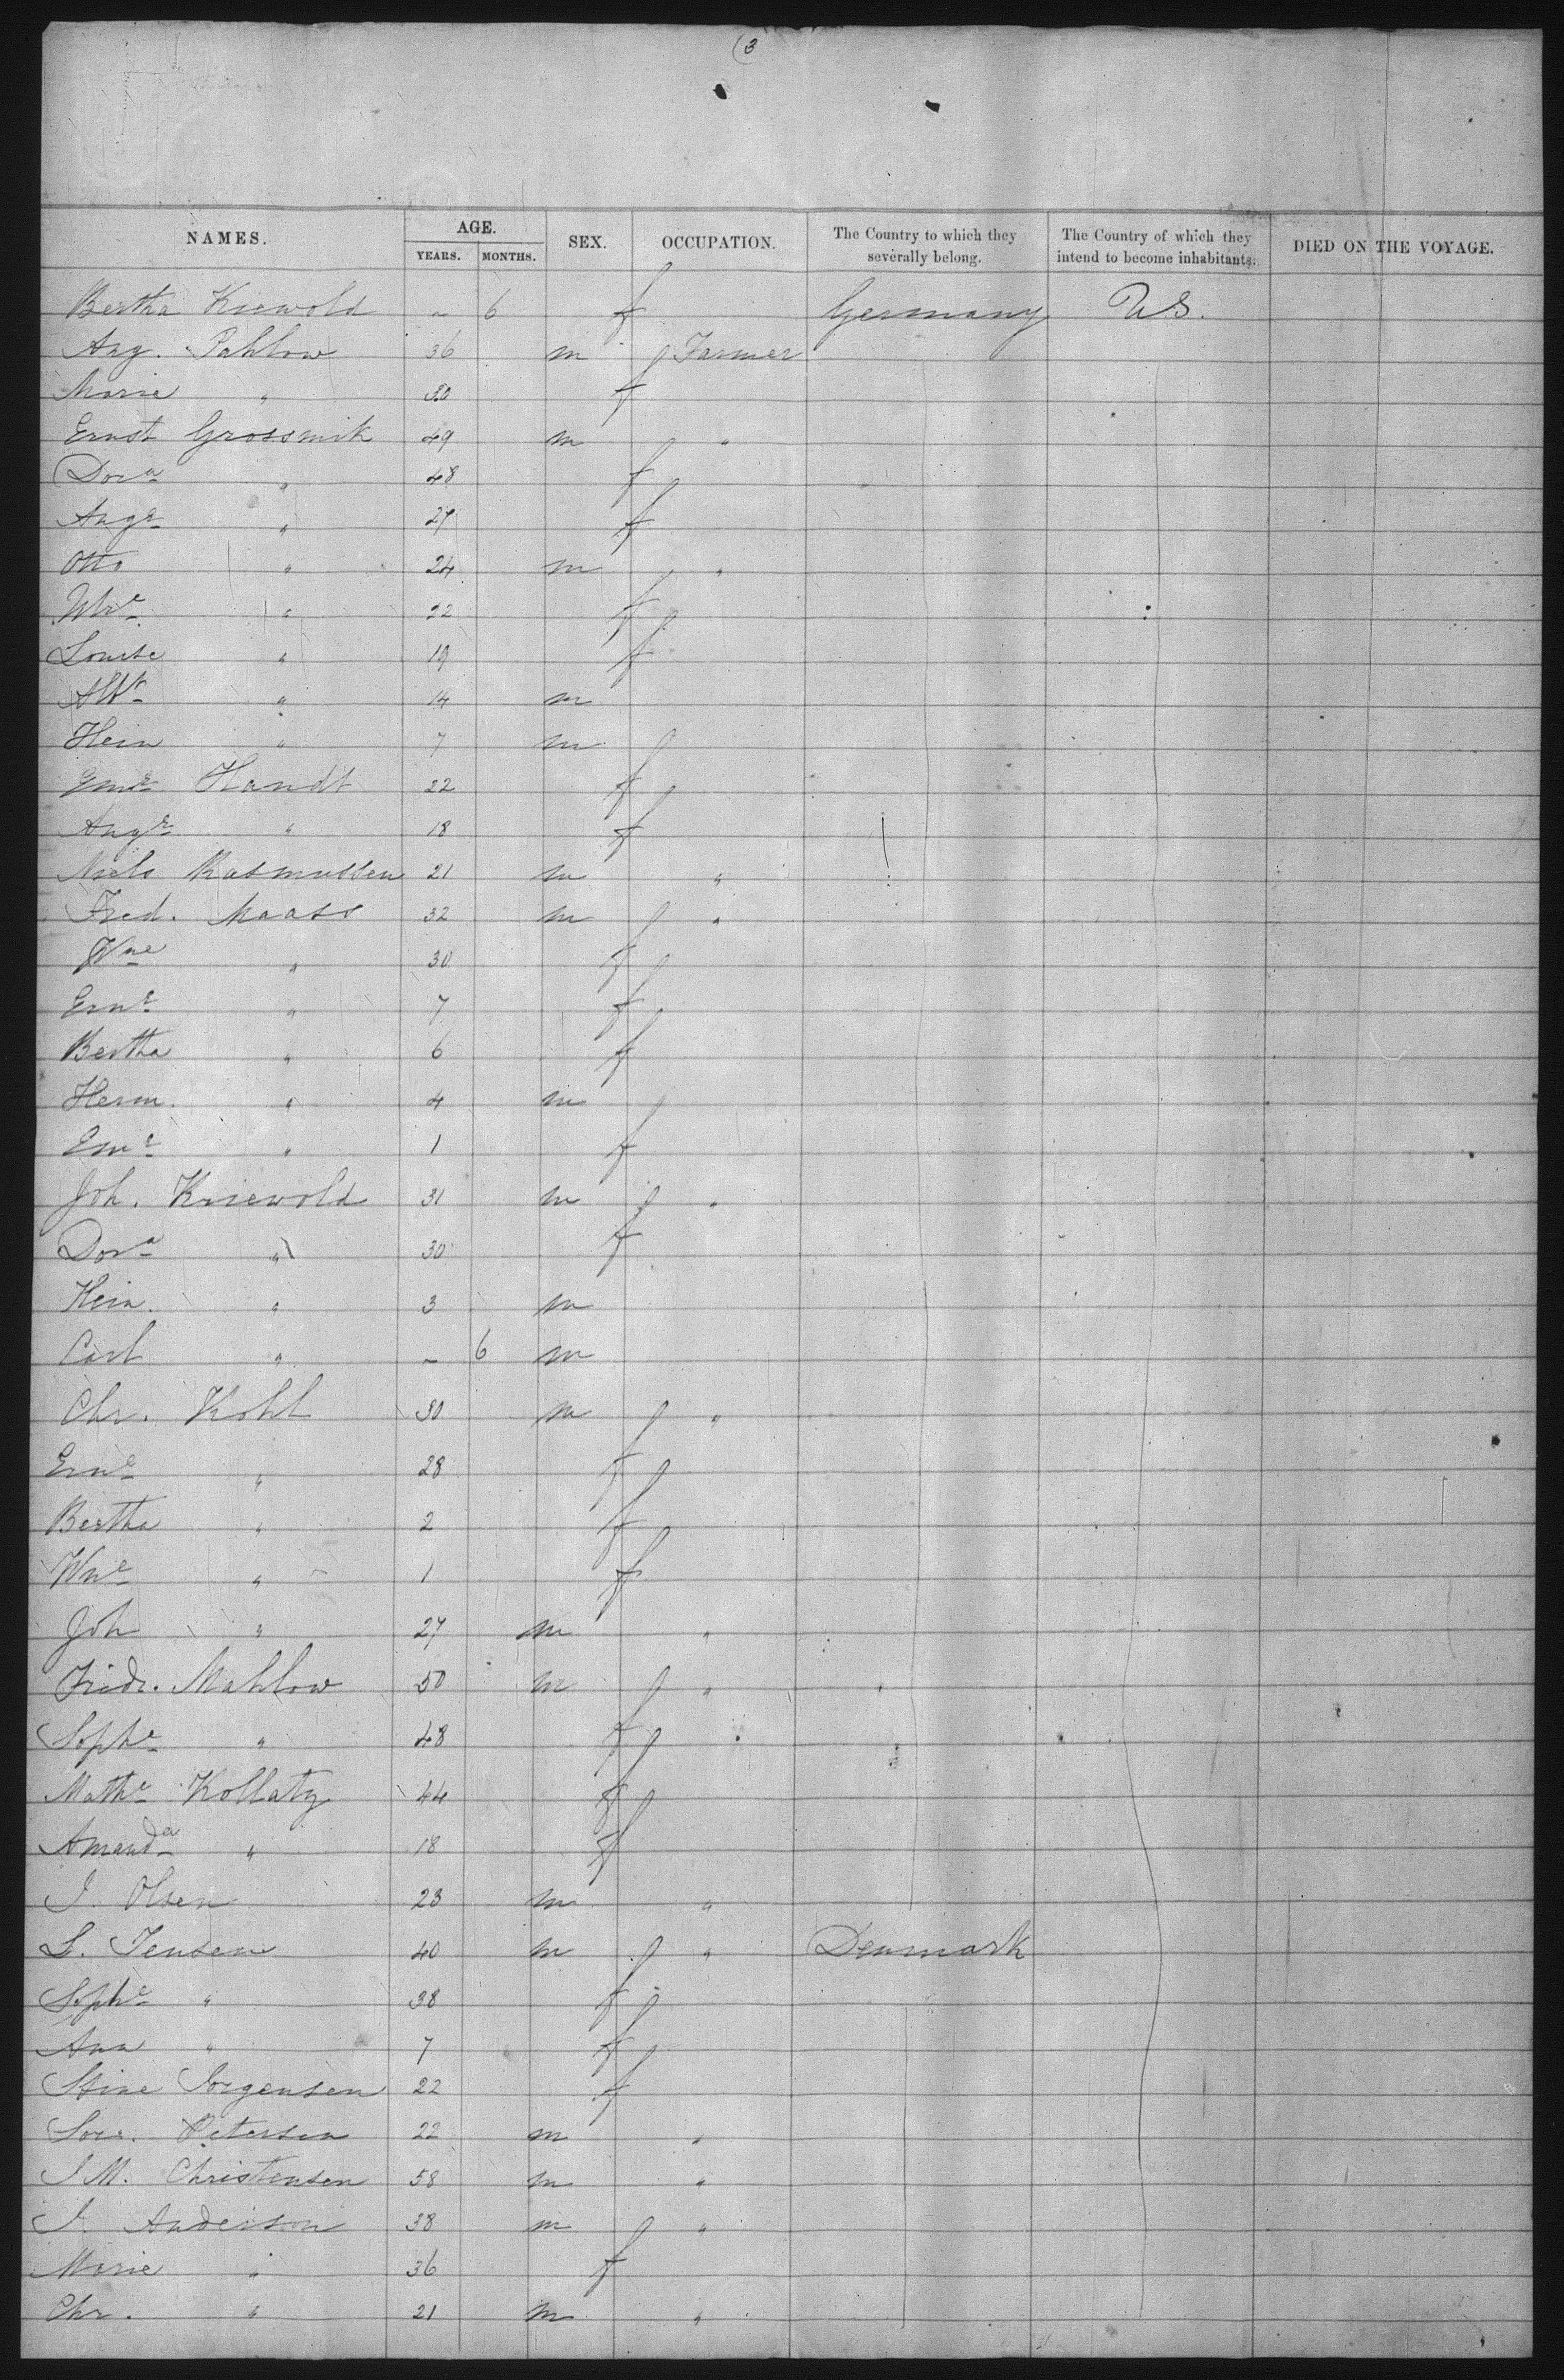 (3
NAMES. AGE. SEX. OCCUPATION. The Country to which they severally belong. The Country of which they intend to become inhabitants. DIED ON THE VOYAGE.
YEARS. MONTHS.
Bertha Kriewold - 6 f Germany US.
Aug. Pahlow 36 m Farmer
Marie " 30 f
Ernst Grossmik 49 m "
Dora " 48 f
Auge " 27 f
Otto " 24 m "
" 22 f
Louise " 19 f
Albt " 14 m
Hein " 7 m
Emie Handt 22 f
Auge " 18 f
Niels Rasmussen 21 m "
Fred. Maass 32 m "
Wne " 30 f
Erne " 7 f
Bertha " 6 f
Herm. " 4 m
Eme " 1 f
Joh. Kriewold 31 m "
Dora " 30 f
Hein. " 3 m
Carl " - 6 m
Chr. Kohl 30 m "
Erne " 28 f
Bertha " 2 f
Wne " 1 f
Joh " 27 m "
Fridr. Mahlow 50 m "
Sophe " 48 f
Mathe Kollatz 44 f
Amanda " 18 f
J. Olsen 23 m "
L. Jensen 40 m " Denmark
Sophe " 38 f
Ana " 7 f
Stine Jorgensen 22 f
Sore. Petersen 22 m "
J M. Christensen 58 m "
J. Anderson 38 m "
Marie " 36 f
Chr. " 21 m "